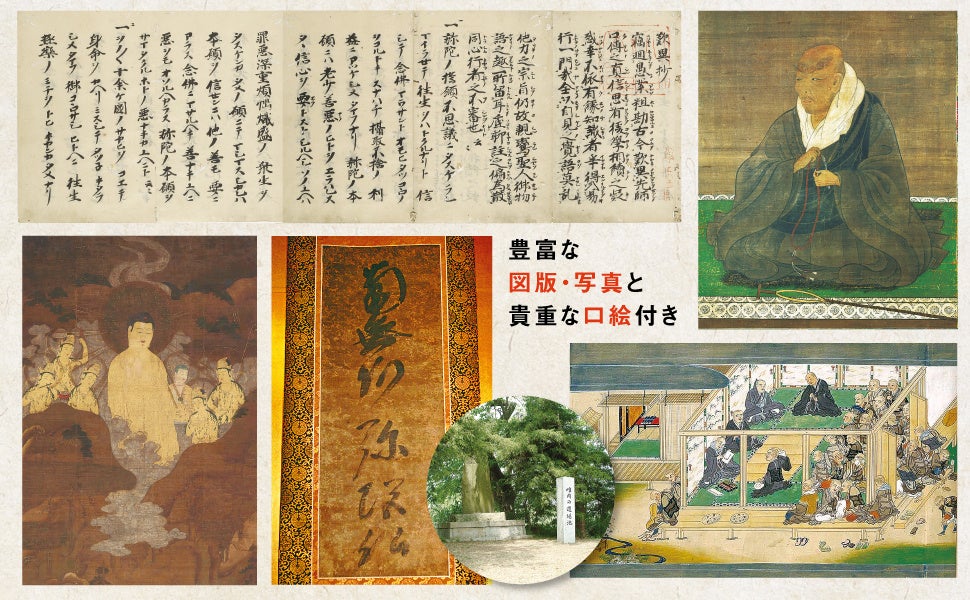 歎異抄
竊廻愚案粗勘古今歎異先師
口傳之眞信思有後學相續之疑
惑幸不依有縁知識者爭得入易
行一門哉全以自見之覺語莫乱
他力之宗旨仍故親鸞聖人御物
語之趣所留耳底聊註之偏爲散
同心行者之不審也云々
一弥陀ノ誓願不思議ニタスケラレ
マイラセテ往生ヲハトクルナリト信
シテ念佛マフサントオモヒタツコヽロノ
ヲコルトキスナハチ攝取不捨ノ利
益ニアツケシメタマフナリ弥陀ノ本
願ニハ老少善悪ノヒトヲエラハレス
タヽ信心ヲ要トストシルヘシソノユヘハ
罪悪深重煩惱熾盛ノ衆生ヲ
タスケンカタメノ願ニテマシマスシカレハ
本願ヲ信センニハ他ノ善モ要ニ
アラス念佛ニマサルヘキ善ナキユヘニ
悪ヲモオソルヘカラス弥陀ノ本願ヲ
サマタクルホトノ悪ナキカユヘニト云々
一ヲノヽヽ十余ケ國ノサカヒヲコエテ
身命ヲカヘリミスシテタツネキタラ
シメタマフ御コヽロサシヒトヘニ往生
極樂ノミチヲトヒキカンカタメナリ
豊富な
図版・写真と
貴重な口絵付き
南無阿弥陀仏